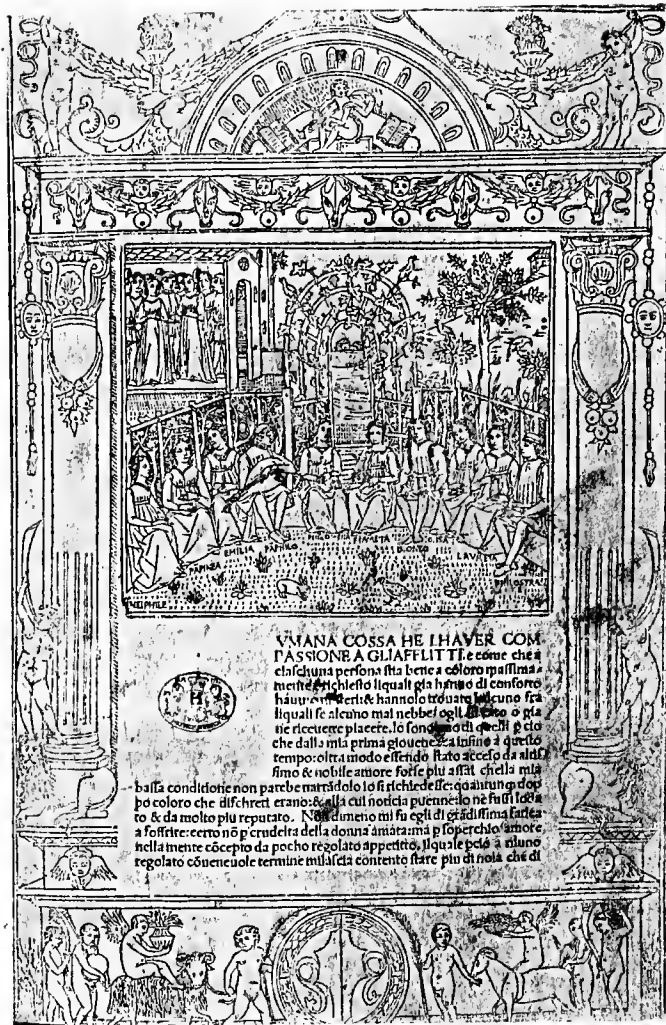 NEIPHILE PAPINEA EMILIA PAPHILO FIAMETA LAVRETA PHILOSTRA
VMANA COSSA HE LHAVER COM
PASSIONE A GLI AFFLITTI. e come che a
ciaschuna persona stia bene a coloro massima
mente e richiesto liquali gia hanno di conforto
& hannolo trouato
liquali se alcuno mai nebbe o gia
ne riceuette piacere. Io sono uno di quelli
che dalla mia prima infino a questo
tempo: oltra modo essendo stato acceso da altis
simo & nobile amore forse piu assai chella mia
bassa conditione non parebe narrãdolo Io si richiedesse: quantunq; dop
po coloro che dischreti erano: & alla cui noticia puenne: Io ne fussi loda
to & da molto piu reputato. Nondimeno mi fu egli di grãdissima faticha
a soffrire: certo nõ p crudelta della donna amata: ma p soperchio amore
nella mente cõcepto da pocho regolato appetito. Ilquale a niuno
regolato cõueneuole termine milascia contento stare piu di noia che di